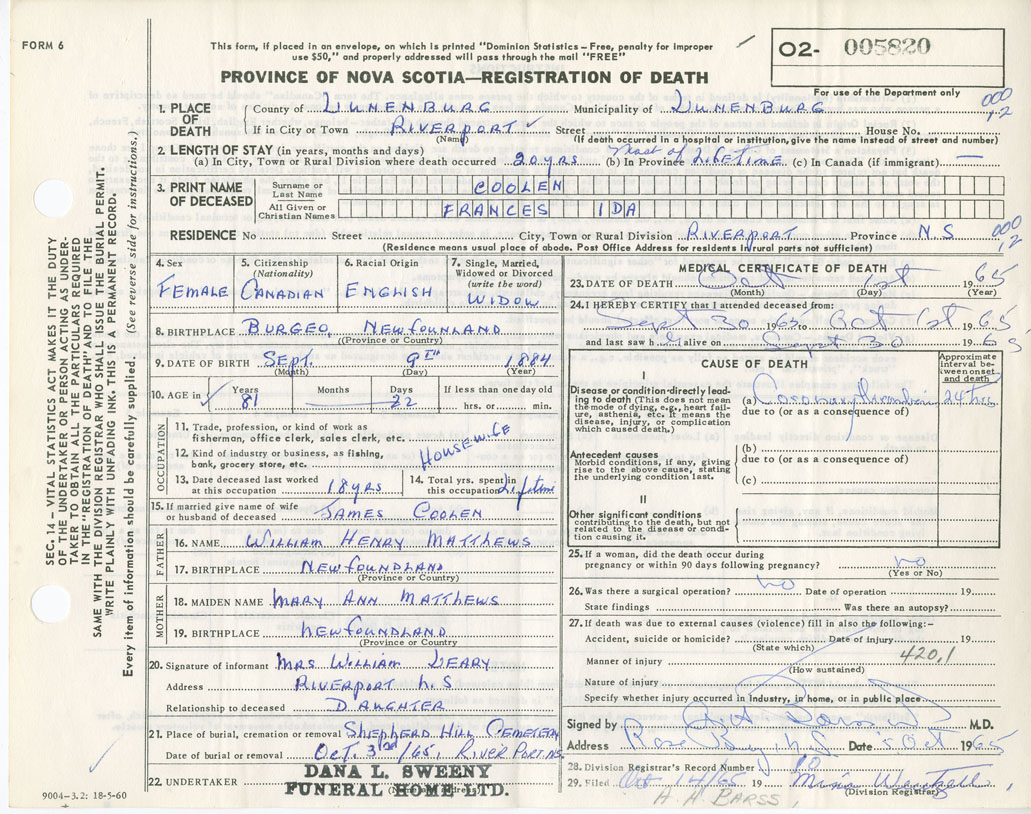 FORM 6
This form, if placed in an envelope, on which is printed "Dominion Statistics – Free, penalty for improper
use $50," and properly addressed will pass through the mail "FREE"
02- 005820
For use of the Department only
PROVINCE OF NOVA SCOTIA—REGISTRATION OF DEATH
1. PLACE OF DEATH
County of LUNENBURG Municipality of LUNENBURG
000
12
If in City or Town RIVERPORT ✓ Street House No.
(Name) (If death occurred in a hospital or institution, give the name instead of street and number)
2. LENGTH OF STAY (in years, months and days)
(a) In City, Town or Rural Division where death occurred 20 yrs (b) In Province Most of LIFETIME (c) In Canada (if immigrant) —
3. PRINT NAME OF DECEASED
Surname or Last Name COOLEN
All Given or Christian Names FRANCES IDA
RESIDENCE No Street City, Town or Rural Division RIVERPORT Province N.S
000
12
(Residence means usual place of abode. Post Office Address for residents in rural parts not sufficient)
4. Sex
FEMALE
5. Citizenship (Nationality)
CANADIAN
6. Racial Origin
ENGLISH
7. Single, Married, Widowed or Divorced (write the word)
WIDOW
8. BIRTHPLACE BURGEO, NEWFOUNLAND
(Province or Country)
9. DATE OF BIRTH SEPT. 9TH 1884
(Month) (Day) (Year)
10. AGE in ✓ Years 81 Months — Days 22 If less than one day old hrs. or min.
OCCUPATION
11. Trade, profession, or kind of work as
fisherman, office clerk, sales clerk, etc.
HOUSEWIFE
12. Kind of industry or business, as fishing,
bank, grocery store, etc.
13. Date deceased last worked
at this occupation 18 yrs
14. Total yrs. spent in
this occupation Lifetime
15. If married give name of wife
or husband of deceased JAMES COOLEN
FATHER
16. NAME WILLIAM HENRY MATTHEWS
17. BIRTHPLACE NEWFOUNDLAND
(Province or Country)
MOTHER
18. MAIDEN NAME MARY ANN MATTHEWS
19. BIRTHPLACE NEWFOUNDLAND
(Province or Country)
20. Signature of informant MRS WILLIAM LEARY
Address RIVERPORT N.S
Relationship to deceased DAUGHTER
21. Place of burial, cremation or removal SHEPHERD HILL CEMETERY
Date of burial or removal OCT. 3rd /65, RIVERPORT. NS.
22. UNDERTAKER DANA L. SWEENY
FUNERAL HOME LTD.
MEDICAL CERTIFICATE OF DEATH
23. DATE OF DEATH Oct 1st 1965
(Month) (Day) (Year)
24. I HEREBY CERTIFY that I attended deceased from:
Sept 30 1965 to Oct 1st 1965
and last saw h alive on Sept 30 1965
CAUSE OF DEATH
Approximate interval between onset and death
I
Disease or condition directly leading to death (This does not mean
the mode of dying, e.g., heart failure, asthenia, etc. It means the
disease, injury, or complication which caused death.)
(a) Coronary thrombosis 24 hrs.
due to (or as a consequence of)
Antecedent causes
Morbid conditions, if any, giving
rise to the above cause, stating
the underlying condition last.
(b)
due to (or as a consequence of)
(c)
II
Other significant conditions
contributing to the death, but not
related to the disease or condition causing it.
25. If a woman, did the death occur during
pregnancy or within 90 days following pregnancy? no
(Yes or No)
26. Was there a surgical operation? no Date of operation 19
State findings Was there an autopsy?
27. If death was due to external causes (violence) fill in also the following:–
Accident, suicide or homicide? Date of injury 19
(State which)
420.1
Manner of injury
(How sustained)
Nature of injury
Specify whether injury occurred in industry, in home, or in public place
Signed by M.D.
Address Rose Bay, N.S. Date 5 Oct 1965
28. Division Registrar's Record Number 80
29. Filed Oct 14/65 19 Wentzell
(Division Registrar)
H. A. BARSS,
SEC. 14 – VITAL STATISTICS ACT MAKES IT THE DUTY
OF THE UNDERTAKER OR PERSON ACTING AS UNDERTAKER TO OBTAIN ALL THE PARTICULARS REQUIRED
IN THE "REGISTRATION OF DEATH" AND FILE THE
SAME WITH THE DIVISION REGISTRAR WHO SHALL ISSUE THE BURIAL PERMIT.
WRITE PLAINLY WITH UNFADING INK. THIS IS A PERMANENT RECORD.
Every item of information should be carefully supplied. (See reverse side for instructions.)
9004-3.2: 18-5-60